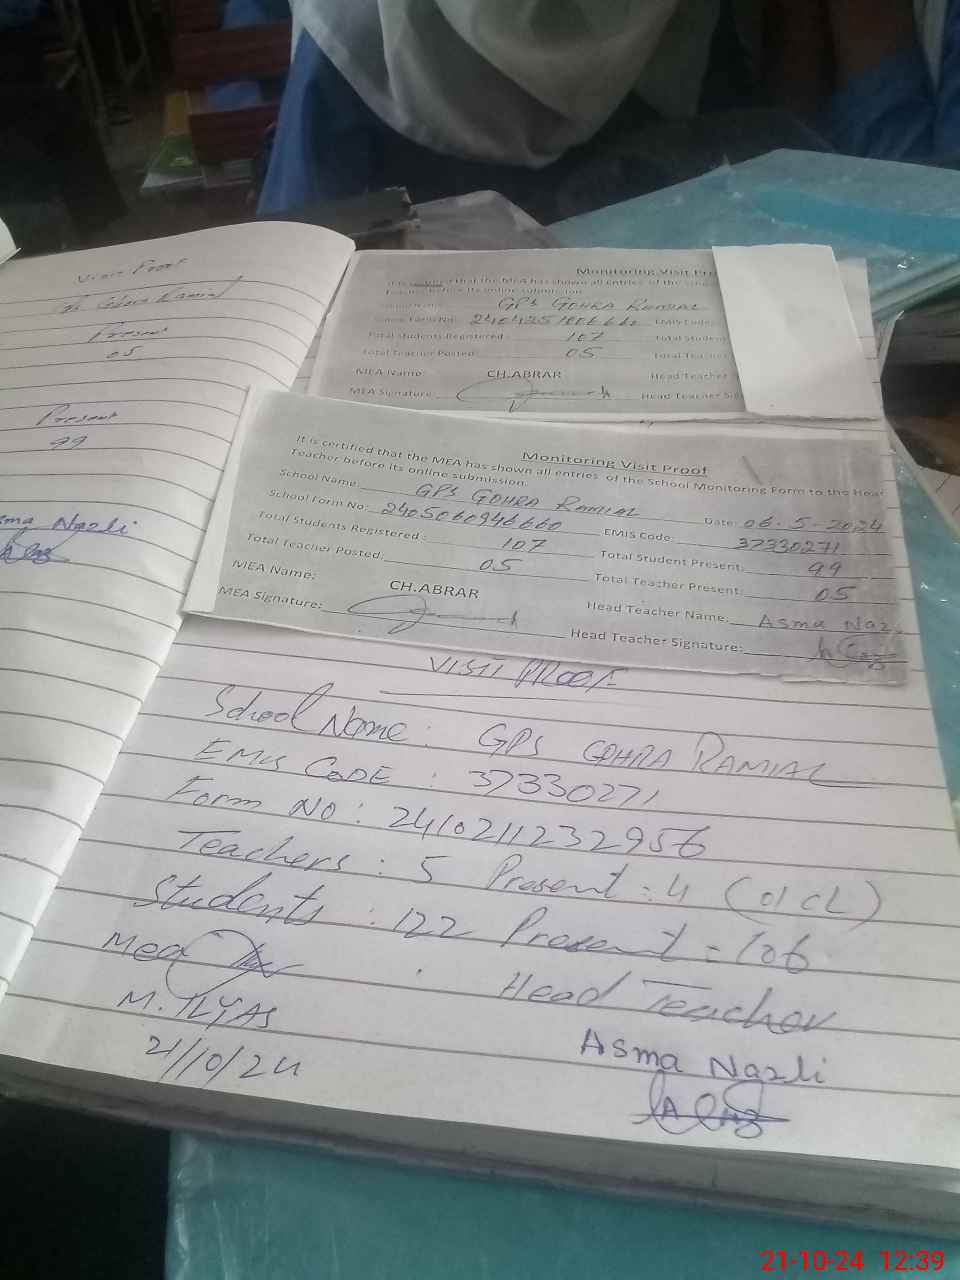 Visit Proof
Present
05
Present
99
Asma Nazli
Monitoring Visit Pro
that the MEA has shown all entries of the
its online submission
GPS GOHRA RAMIAL
EMIS Code:
Total Students Registered : 107 Total Student
Total Teacher Posted: 05 Total Teacher
MEA Name: CH.ABRAR Head Teacher
MEA Signature: Head Teacher Sig
Monitoring Visit Proof
It is certified that the MEA has shown all entries of the School Monitoring Form to the Head
Teacher before its online submission.
School Name: GPS GOHRA RAMIAL Date: 06-5-2024
School Form No: 2405060946660 EMIS Code: 37330271
Total Students Registered : 107 Total Student Present: 99
Total Teacher Posted: 05 Total Teacher Present: 05
MEA Name: CH.ABRAR Head Teacher Name: Asma Naz
MEA Signature: Head Teacher Signature:
VISIT PROOF
School Name : GPS GOHRA RAMIAL
EMIS CODE : 37330271
Form NO : 2410211232956
Teachers : 5 Present : 4 (01 CL)
Students : 122 Present = 106
Mea Head Teacher
M. ILYAS Asma Nazli
21/10/24
21-10-24 12:39